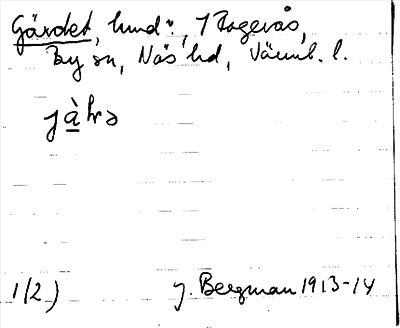 Gärdet, hmd n, 1 Rogerås,
By sn, Näs hd, Värml. l.
jàhrə
1/2) J. Bergman 1913-14